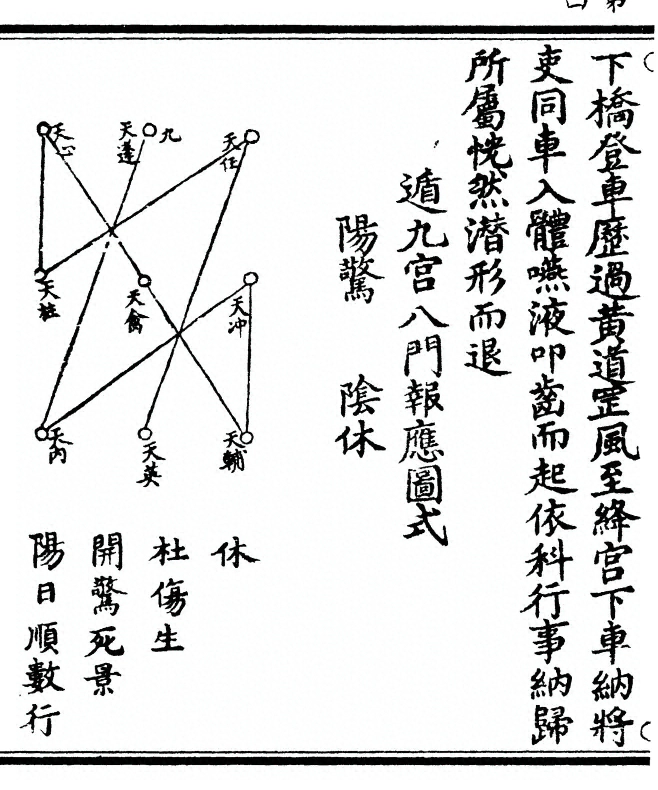 下橋登車歷過黃道罡風至絳宮下車納將
吏同車入體嚥液叩齒而起依科行事納歸
所屬恍然潛形而退
遁九宮八門報應圖式
陽驚　陰休
天任
九
天蓬
天心
天冲
天禽
天柱
天輔
天英
天內
休
杜傷生
開驚死景
陽日順數行